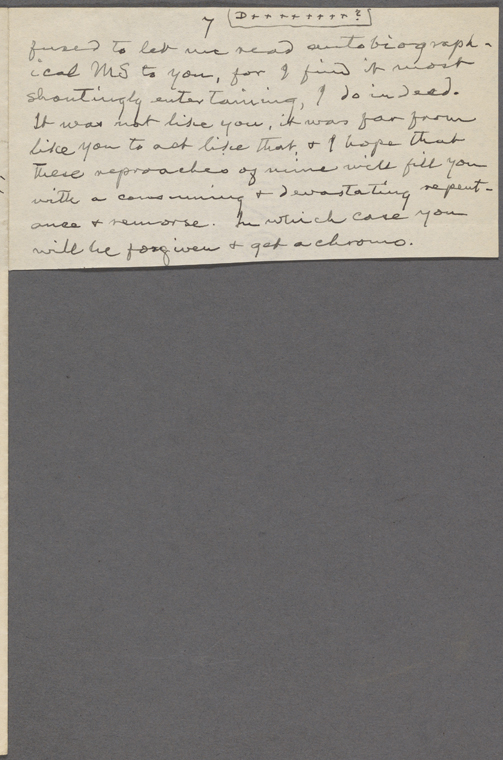 7 D+++++++++?
fused to let me read autobiograph-
ical MS to you, for I find it most
shoutingly entertaining, I do indeed.
It was not like you, it was far from
like you to act like that, & I hope that
these reproaches of mine will fill you
with a consuming & devastating repent-
ance & remorse. In which case you
will be forgiven & get a chromo.